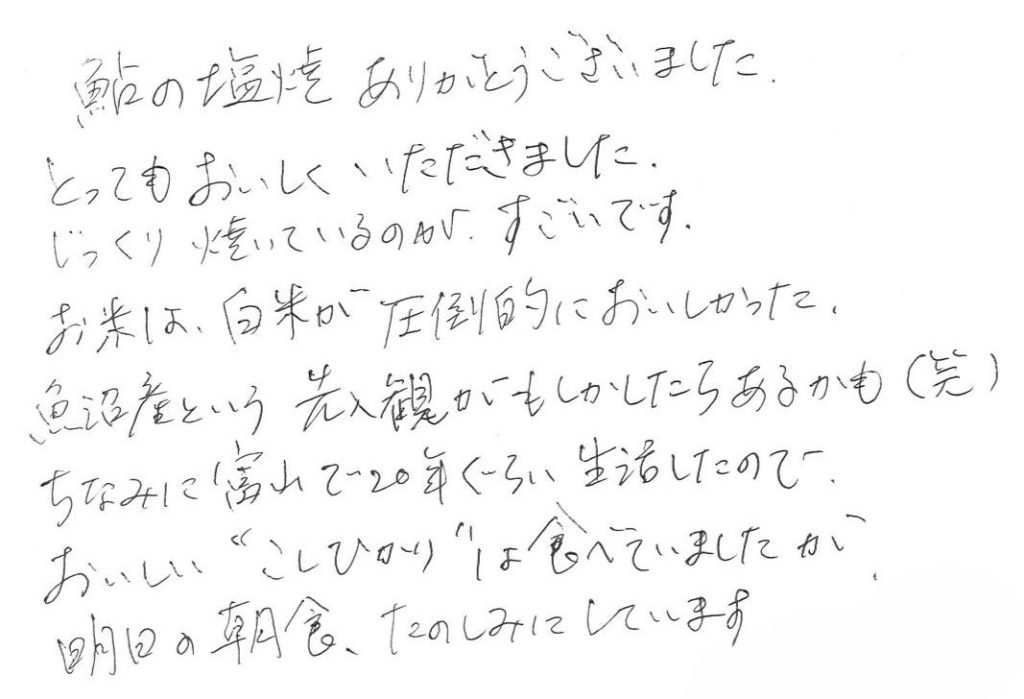 鮎の塩焼 ありがとうございました.
とってもおいしくいただきました.
じっくり焼いているのが.すごいです.
お米は、白米が圧倒的においしかった.
魚沼産という先入観がもしかしたらあるかも(笑)
ちなみに富山で20年ぐらい生活したので.
おいしい"こしひかり"は食べていましたが.
明日の朝食、たのしみにしています